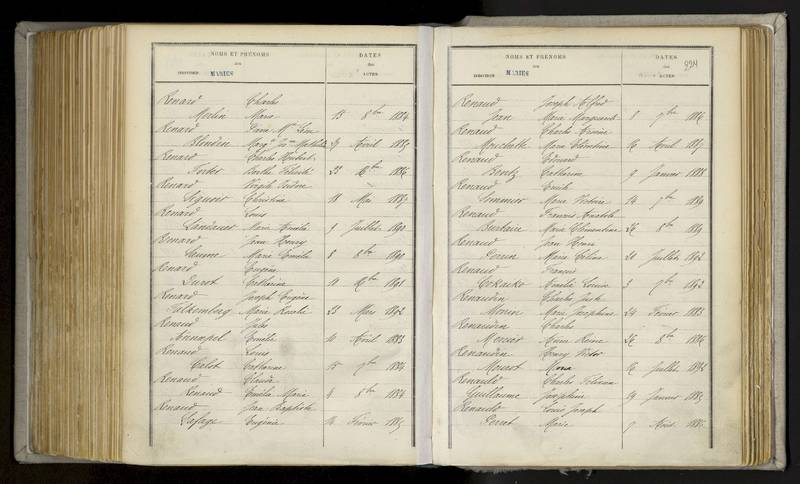 NOMS ET PRÉNOMS
des
MARIÉS
DATES
des
ACTES
Renard Charles
Merlin Marie 15 8bre 1884
Renard
Blinden 29 Avril 1885
Renard Charles Norbert
Forter Berthe 23 1886
Renard Virgile Isidore
Signour Christine 18 Mai 1887
Renard Louis
Landauer Marie Amélie 9 Juillet 1890
Renard Jean Henry
Marie Amélie 8 8bre 1890
Renard Eugène
Duret Catherine 11 1891
Renard Joseph Eugène
Falkemberg Marie Rosalie 23 Mars 1892
Renaud Jules
Annapel Amélie 16 Avril 1883
Renaud Louis
Calot Catherine 15 7bre 1884
Renaud Claude
Renaud Emilie Marie 4 8bre 1884
Renaud Jean Baptiste
Lafage Eugénie 14 Février 1885
NOMS ET PRÉNOMS
des
MARIÉS
DATES
des
ACTES
994
Renaud Joseph Alfred
Jean Marie Marguerite 8 7bre 1886
Renaud Charles
Mouchette Marie Clémentine 16 Avril 1887
Renaud Edouard
Bentz Catherine 9 Janvier 1888
Renaud Emile
Sommier Marie Victoire 14 7bre 1889
Renaud François Anatole
Burtaire Marie Clémentine 26 8bre 1889
Renaud Jean Henri
Perrin Marie Céline 20 Juillet 1892
Renaud François
Amélie Louise 3 7bre 1892
Renaudin Charles Just
Morin Marie Joséphine 24 Février 1883
Renaudin Charles
Mercier Anne Reine 26 8bre 1886
Renaudin Henry Victor
Mourot Marie 16 Juillet 1892
Renauld Charles
Guillaume Joséphine 19 Janvier 1885
Renauld Louis Joseph
Perret Marie 9 Août 1886